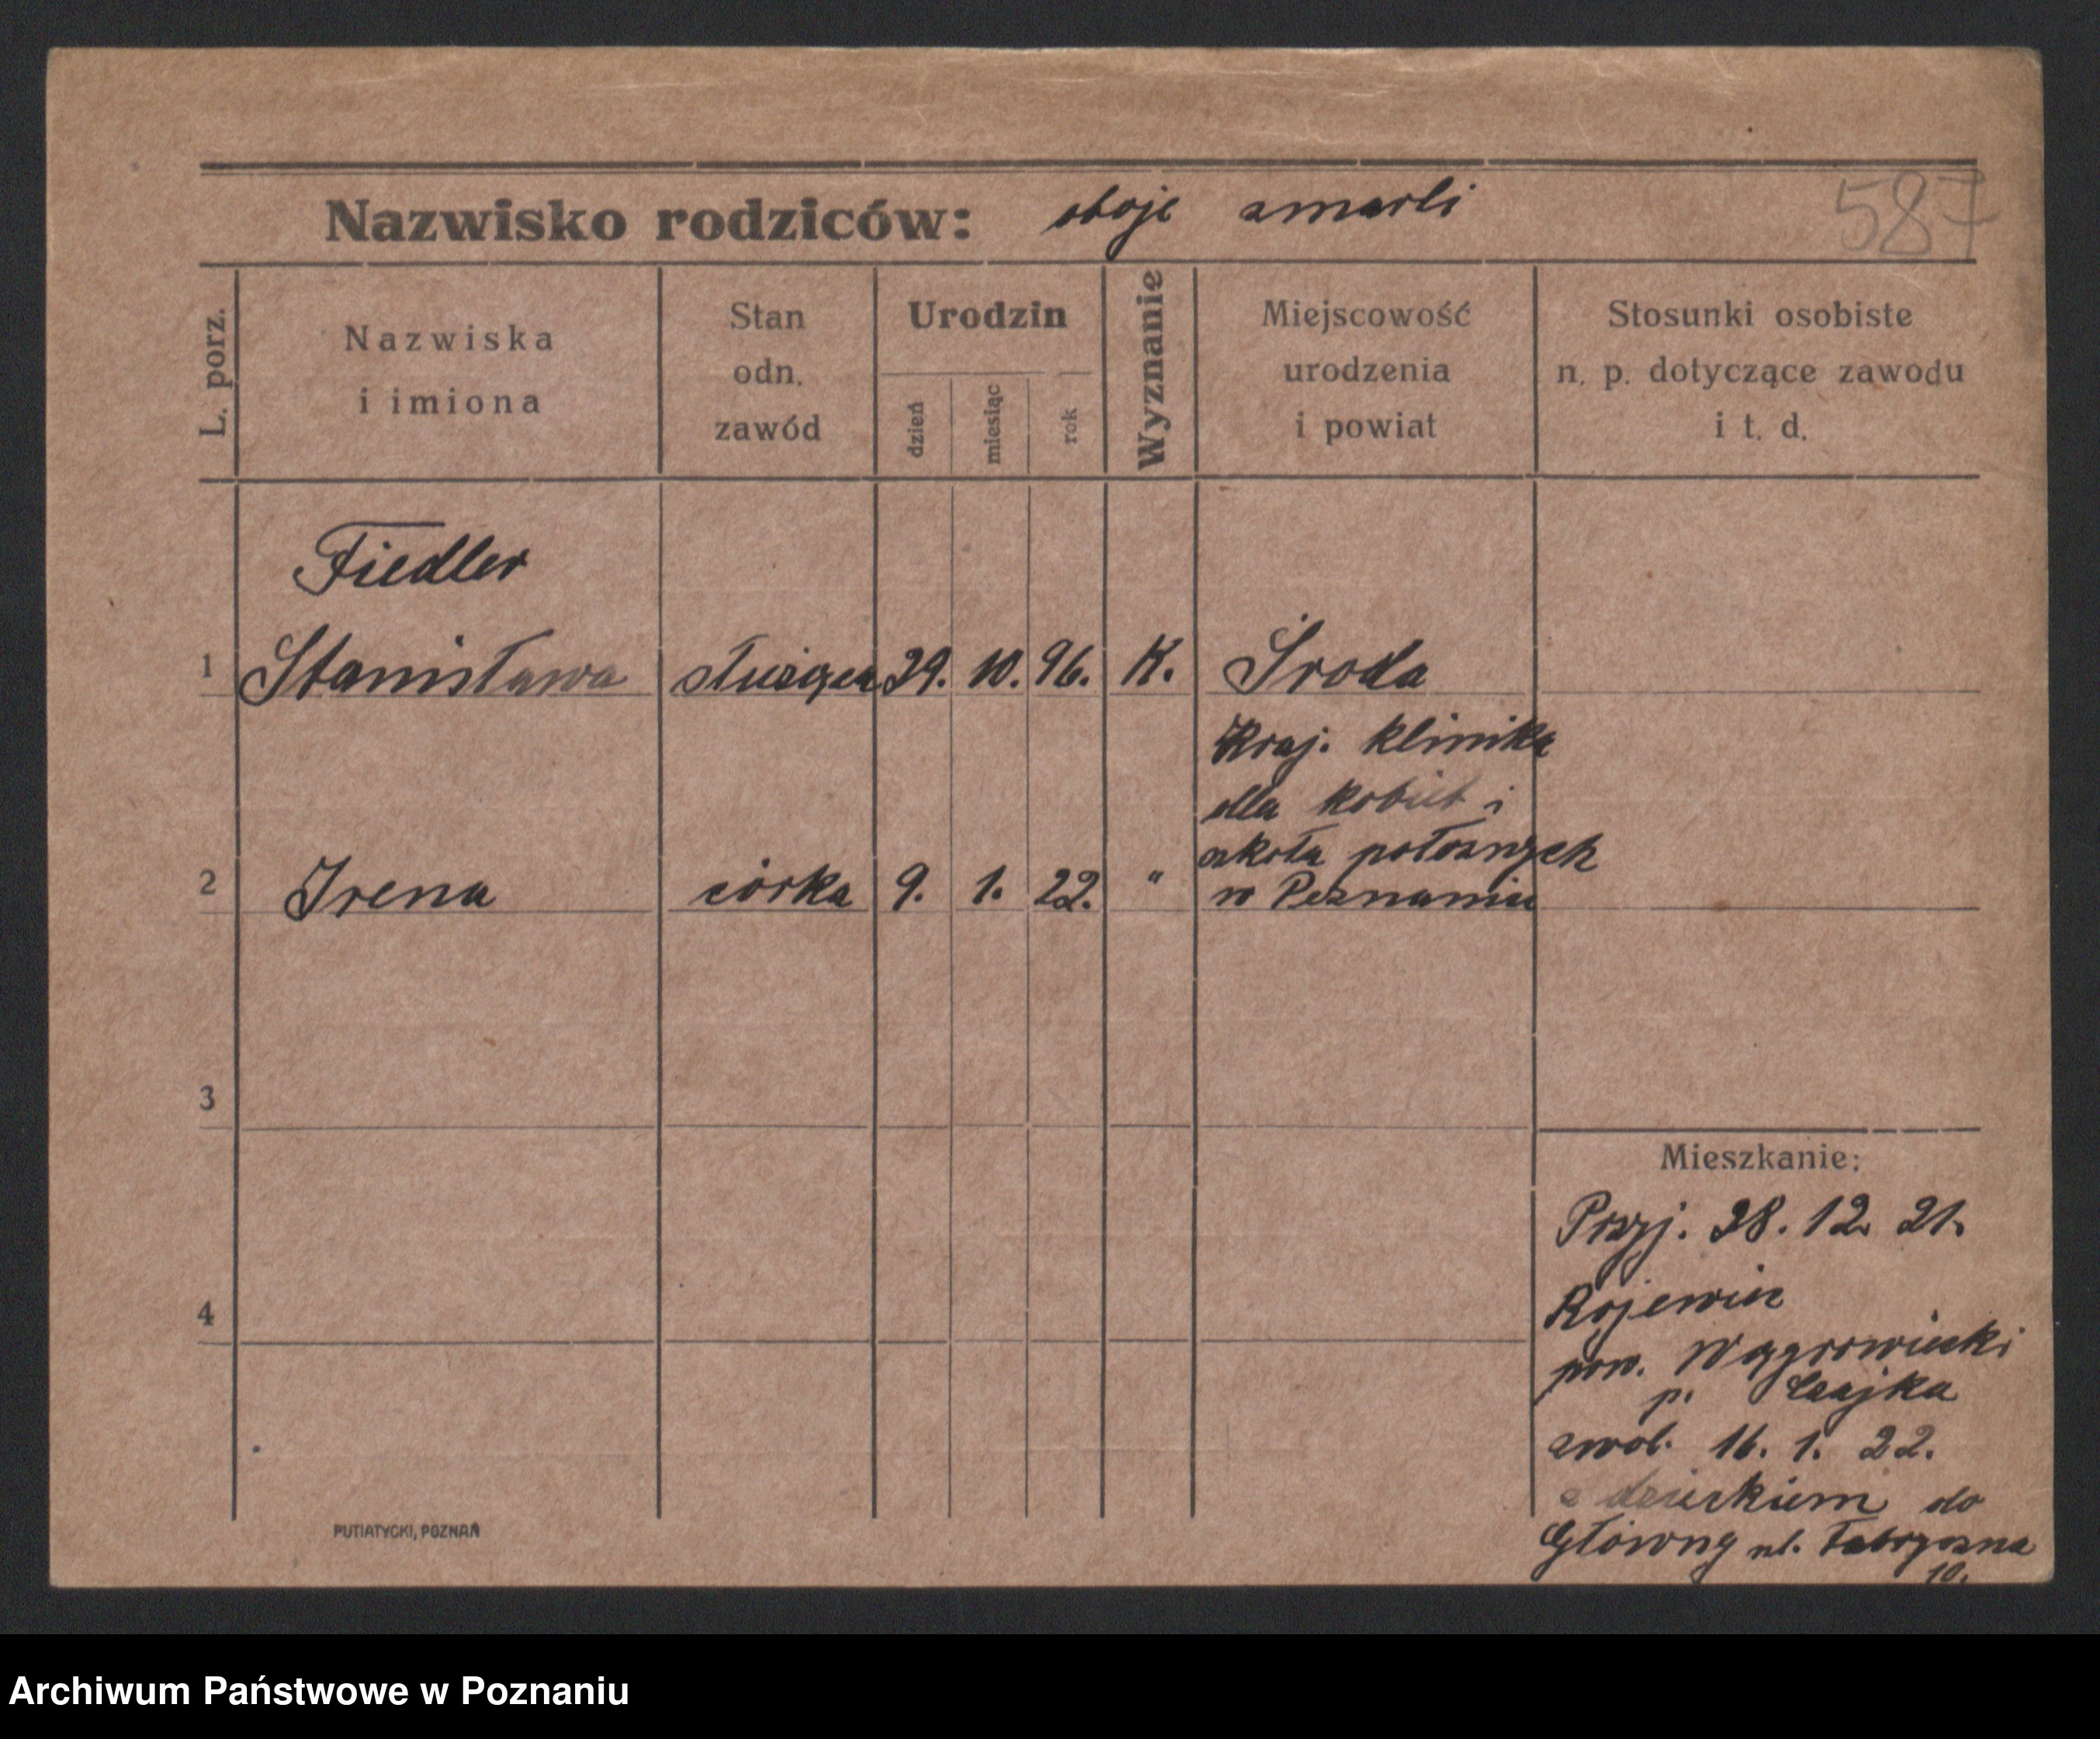 587
Nazwisko rodziców: oboje zmarli
L. porz.
Nazwiska
i imiona
Stan
odn.
zawód
Urodzin
dzień
miesiąc
rok
Wyznanie
Miejscowość
urodzenia
i powiat
Stosunki osobiste
n. p. dotyczące zawodu
i t. d.
Fiedler
1 Stanisława służąca 29. 10. 96. K. Środa
Kraj. klinika
dla kobiet i
szkoła położnych
2 Irena córka 9. 1. 22. " w Poznaniu
3
4
Mieszkanie:
Przyj. 28. 12. 21.
pow. Wągrowiecki
p. Czajka
zwol. 16. 1. 22.
z dzieckiem do
Główny ul. Fabryczna
10.
PUTIATYCKI, POZNAŃ
Archiwum Państwowe w Poznaniu